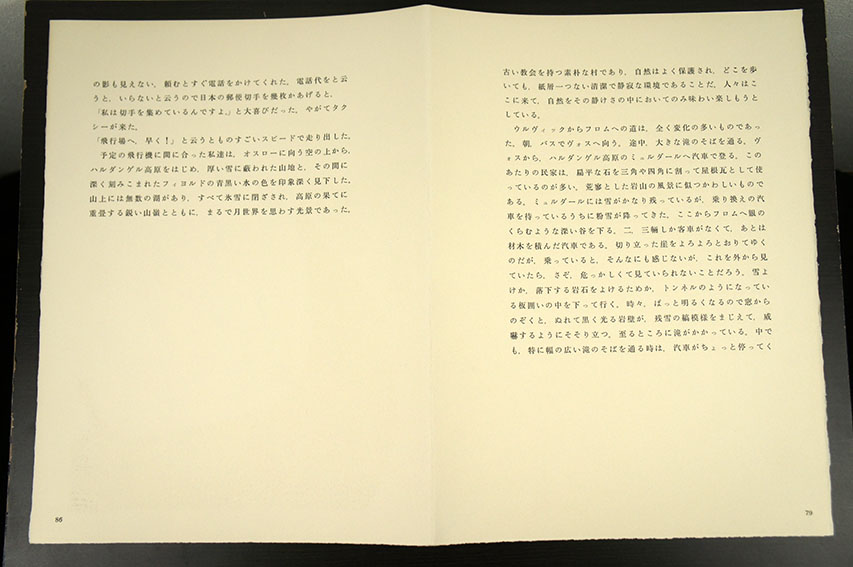 の影も見えない。頼むとすぐ電話をかけてくれた。電話代をと云
うと、いらないと云うので日本の郵便切手を幾枚かあげると、
「私は切手を集めているんですよ。」と大喜びだった。やがてタク
シーが来た。
「飛行場へ、早く！」と云うとものすごいスピードで走り出した。
予定の飛行機に間に合った私達は、オスローに向う空の上から、
ハルダンゲル高原をはじめ、厚い雪に蔽われた山地と、その間に
深く刻みこまれたフィヨルドの青黒い水の色を印象深く見下した。
山上には無数の湖があり、すべて氷雪に閉ざされ、高原の果てに
重畳する鋭い山嶺とともに、まるで月世界を思わす光景であった。
86
古い教会を持つ素朴な村であり、自然はよく保護され、どこを歩
いても、紙屑一つない清潔で静寂な環境であることだ。人々はこ
こに来て、自然をその静けさの中においてのみ味わい楽しもうと
している。
ウルヴィックからフロムへの道は、全く変化の多いものであっ
た。朝、バスでヴォスへ向う。途中、大きな滝のそばを通る。ヴ
ォスから、ハルダンゲル高原のミュルダールへ汽車で登る。この
あたりの民家は、扁平な石を三角や四角に割って屋根瓦として使
っているのが多い。荒寥とした岩山の風景に似つかわしいもので
ある。ミュルダールには雪がかなり残っているが、乗り換えの汽
車を待っているうちに粉雪が降ってきた。ここからフロムへ眼の
くらむような深い谷を下る。二、三輛しか客車がなくて、あとは
材木を積んだ汽車である。切り立った崖をよろよろとおりてゆく
のだが、乗っていると、そんなにも感じないが、これを外から見
ていたら、さぞ、危っかしくて見ていられないことだろう。雪よ
けか、落下する岩石をよけるためか、トンネルのようになってい
る板囲いの中を下って行く。時々、ぱっと明るくなるので窓から
のぞくと、ぬれて黒く光る岩壁が、残雪の縞模様をまじえて、威
嚇するようにそそり立つ。至るところに滝がかかっている。中で
も、特に幅の広い滝のそばを通る時は、汽車がちょっと停ってく
79